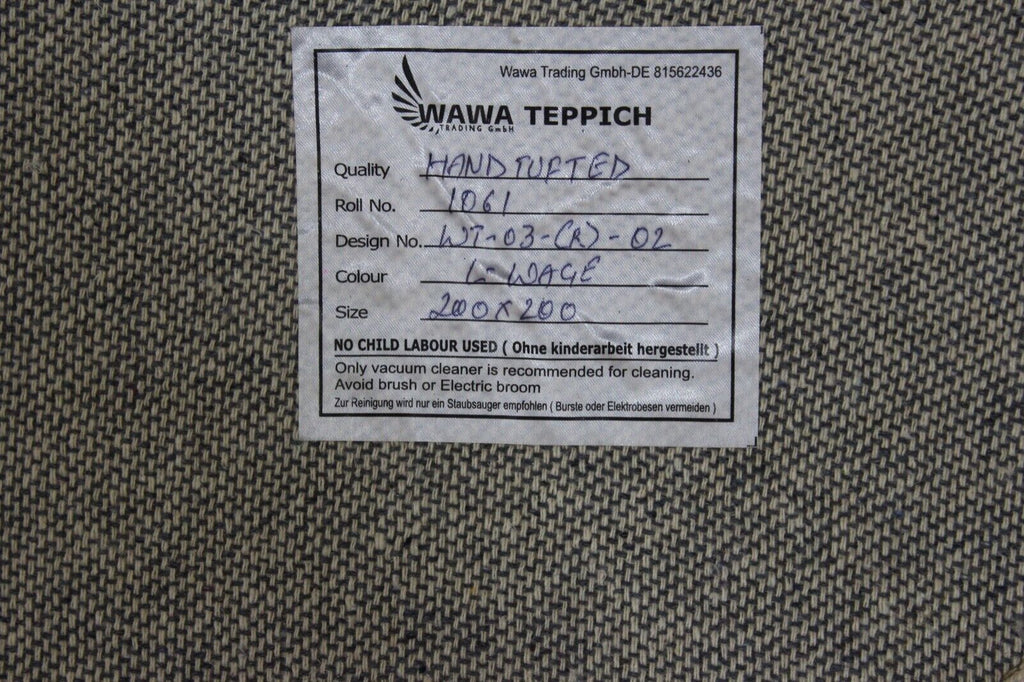 Wawa Trading Gmbh-DE 815622436
WAWA TEPPICH
TRADING GmbH
Quality HANDTUFTED
Roll No. 1061
Design No. WT-03-(R)-02
Colour L-WAGE
Size 200 x 200
NO CHILD LABOUR USED ( Ohne kinderarbeit hergestellt )
Only vacuum cleaner is recommended for cleaning.
Avoid brush or Electric broom
Zur Reinigung wird nur ein Staubsauger empfohlen ( Burste oder Elektrobesen vermeiden )